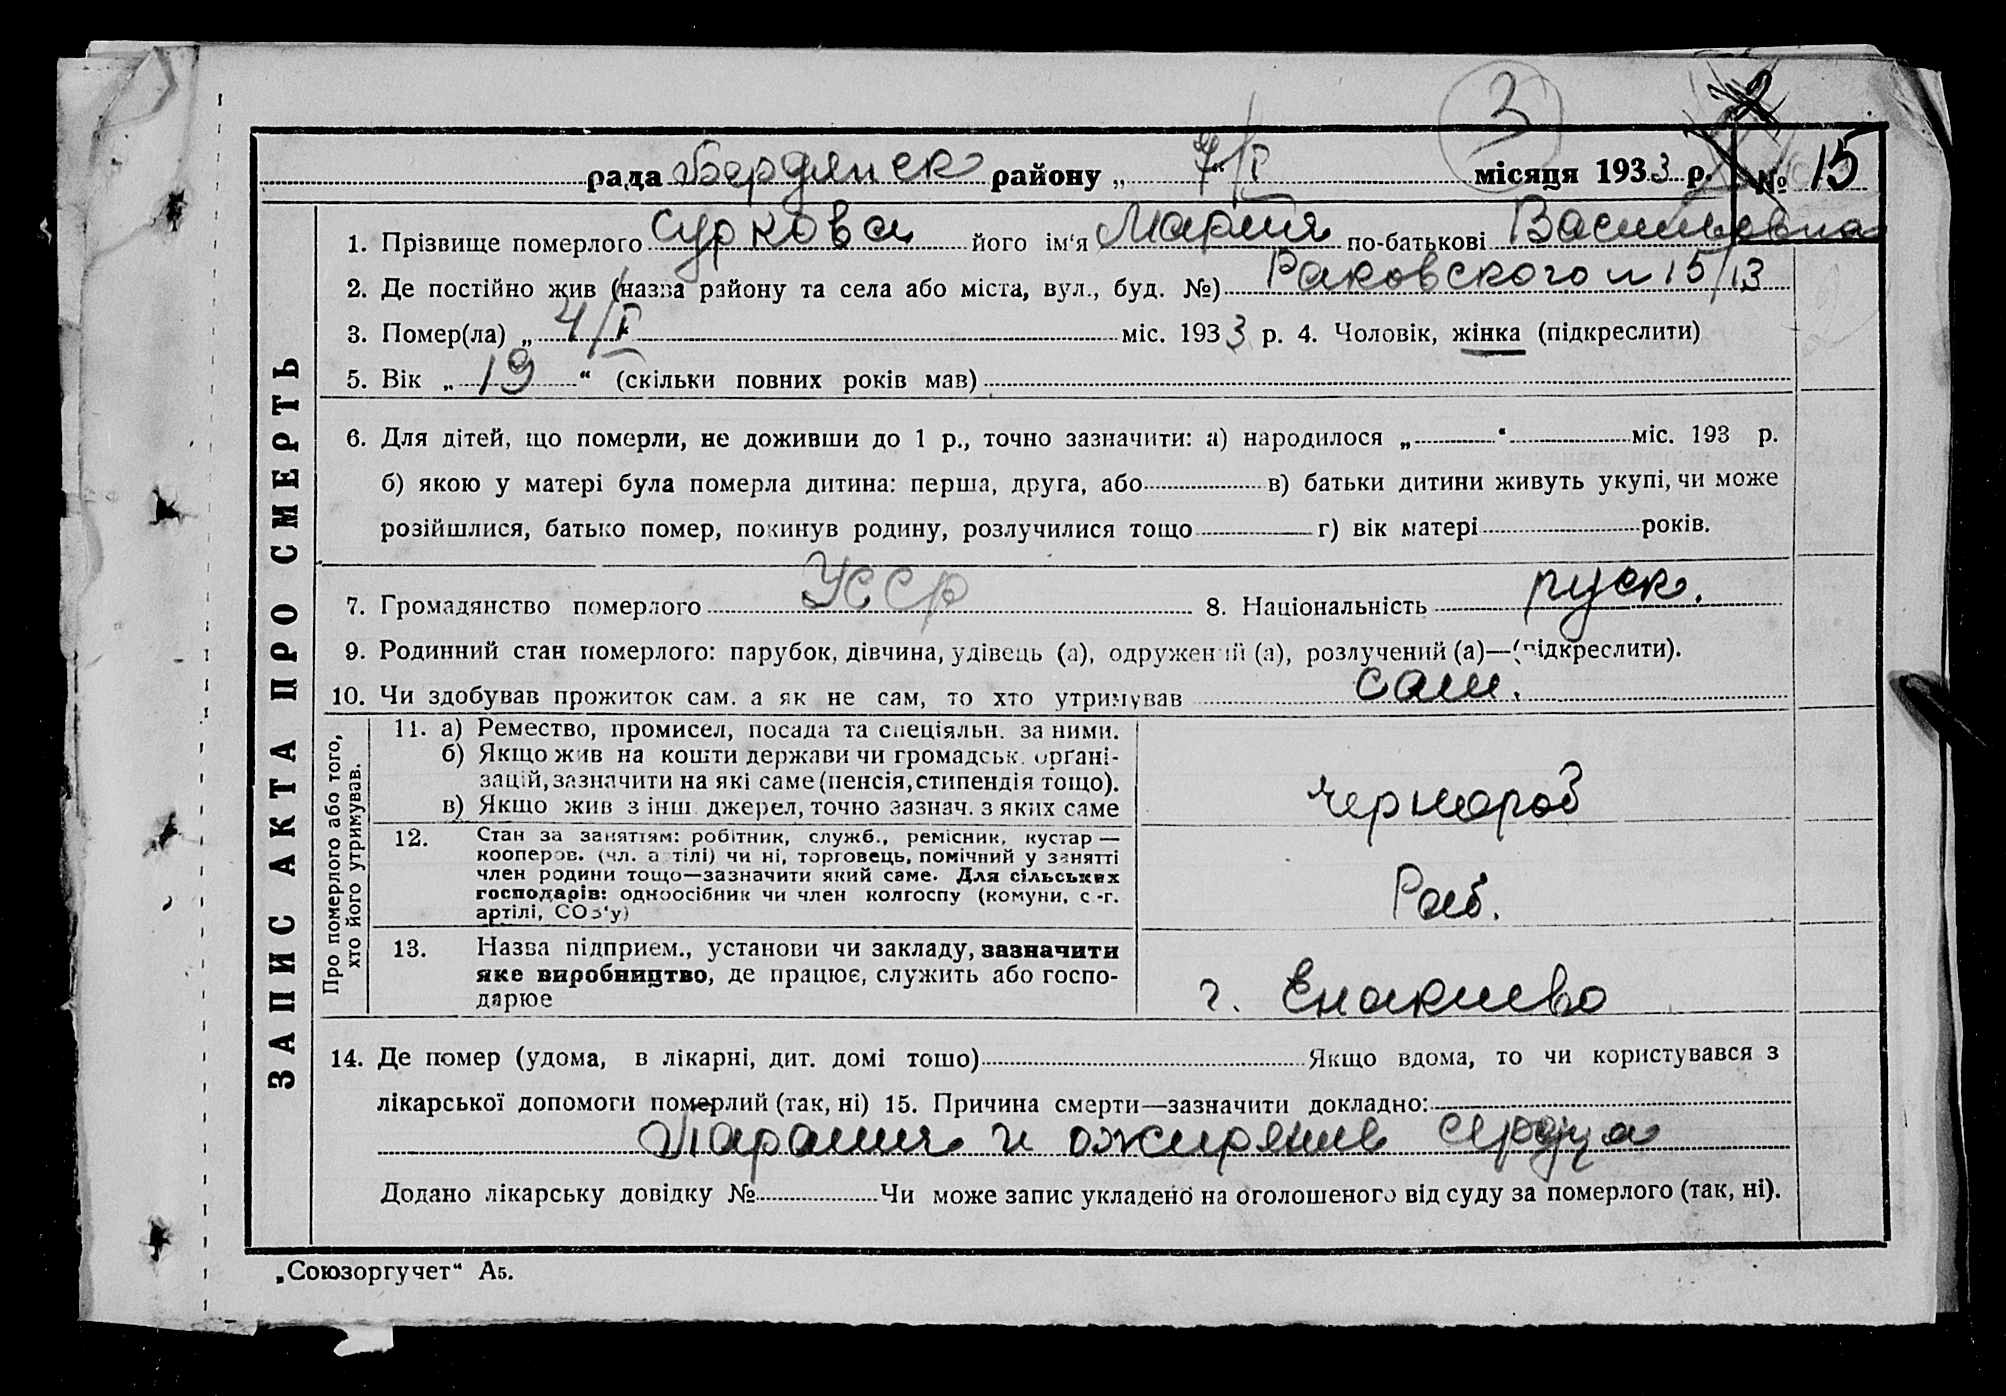 3
рада Бердянск району „ 7/I місяця 1933 р. № 15
ЗАПИС АКТА ПРО СМЕРТЬ
1. Прізвище померлого Суркова його ім'я Мария по-батькові Васильевна
2. Де постійно жив (назва району та села або міста, вул., буд. №) Раковского 15/13
3. Помер(ла) „ 4/I міс. 1933 р. 4. Чоловік, жінка (підкреслити)
5. Вік „ 19 “ (скільки повних років мав)
6. Для дітей, що померли, не доживши до 1 р., точно зазначити: а) народилося „ “ міс. 193 р.
б) якою у матері була померла дитина: перша, друга, або в) батьки дитини живуть укупі, чи може
розійшлися, батько помер, покинув родину, розлучилися тощо г) вік матері років.
7. Громадянство померлого УССР 8. Національність руск.
9. Родинний стан померлого: парубок, дівчина, удівець (а), одружений (а), розлучений (а)—(підкреслити).
10. Чи здобував прожиток сам. а як не сам, то хто утримував сам.
Про померлого або того,
хто його утримував.
11. а) Ремество, промисел, посада та спеціяльн. за ними.
б) Якщо жив на кошти держави чи громадськ. органі-
зацій, зазначити на які саме (пенсія, стипендія тощо).
в) Якщо жив з інш. джерел, точно зазнач. з яких саме
чернораб
12. Стан за заняттям: робітник, служб., ремісник, кустар —
кооперов. (чл. артілі) чи ні, торговець, помічний у занятті
член родини тощо—зазначити який саме. Для сільських
господарів: одноосібник чи член колгоспу (комуни, с.-г.
артілі, СОЗ'у)
Раб.
13. Назва підприєм., установи чи закладу, зазначити
яке виробництво, де працює, служить або госпо-
дарює
г. Енакиево
14. Де помер (удома, в лікарні, дит. домі тощо) Якщо вдома, то чи користувався з
лікарської допомоги померлий (так, ні) 15. Причина смерти—зазначити докладно:
и ожирение сердца
Додано лікарську довідку № Чи може запис укладено на оголошеного від суду за померлого (так, ні).
„Союзоргучет“ А5.